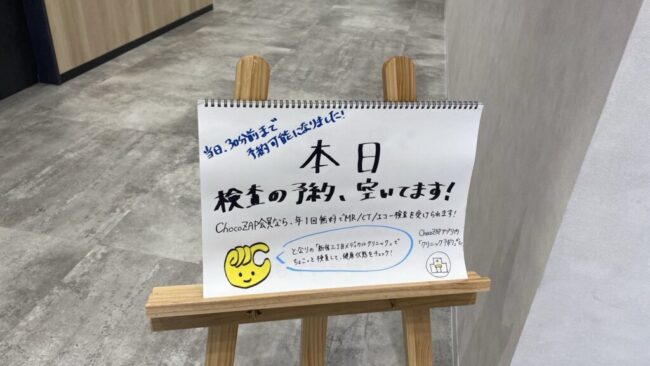 当日、30分前まで
予約可能になりました!
本日
検査の予約、空いてます!
ChocoZAP会員なら、年1回無料でMR/CT/エコー検査を受けられます!
となりの「新宿三丁目メディカルクリニック」で
ちょこっと検査して、健康状態をチェック!
ChocoZAPアプリの